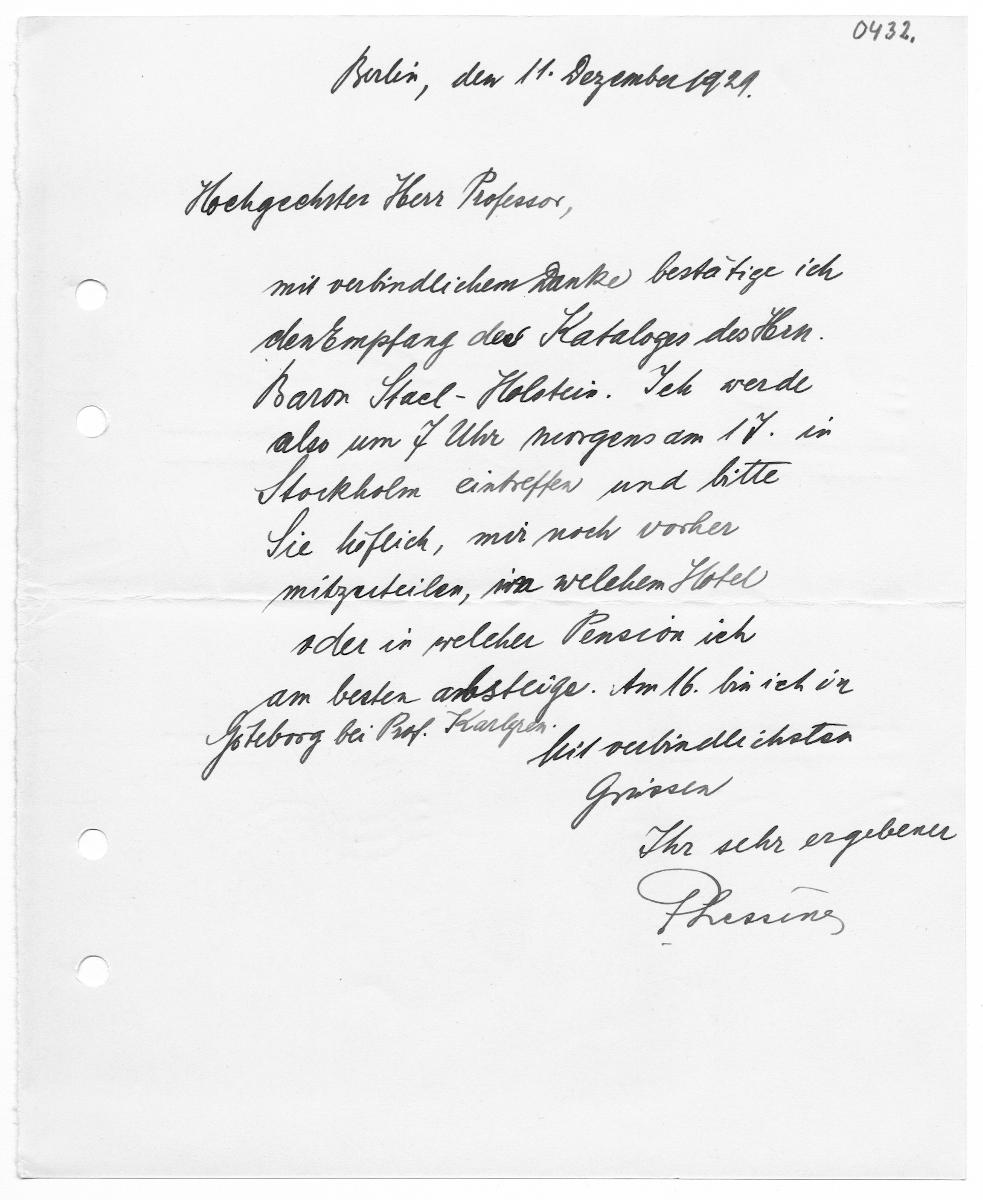 0432.
Berlin, den 11. Dezember 1929.
Hochgeehrter Herr Professor,
mit verbindlichem Danke bestätige ich
den Empfang des Kataloges des Hrn.
Baron Stael-Holstein. Ich werde
also um 7 Uhr morgens am 17. in
Stockholm eintreffen und bitte
Sie höflich, mir noch vorher
mitzuteilen, in welchem Hotel
oder in welcher Pension ich
am besten absteige. Am 16. bin ich in
Göteborg bei Prof. Karlgren.
Mit verbindlichsten
Grüssen
Ihr sehr ergebener
F Lessing